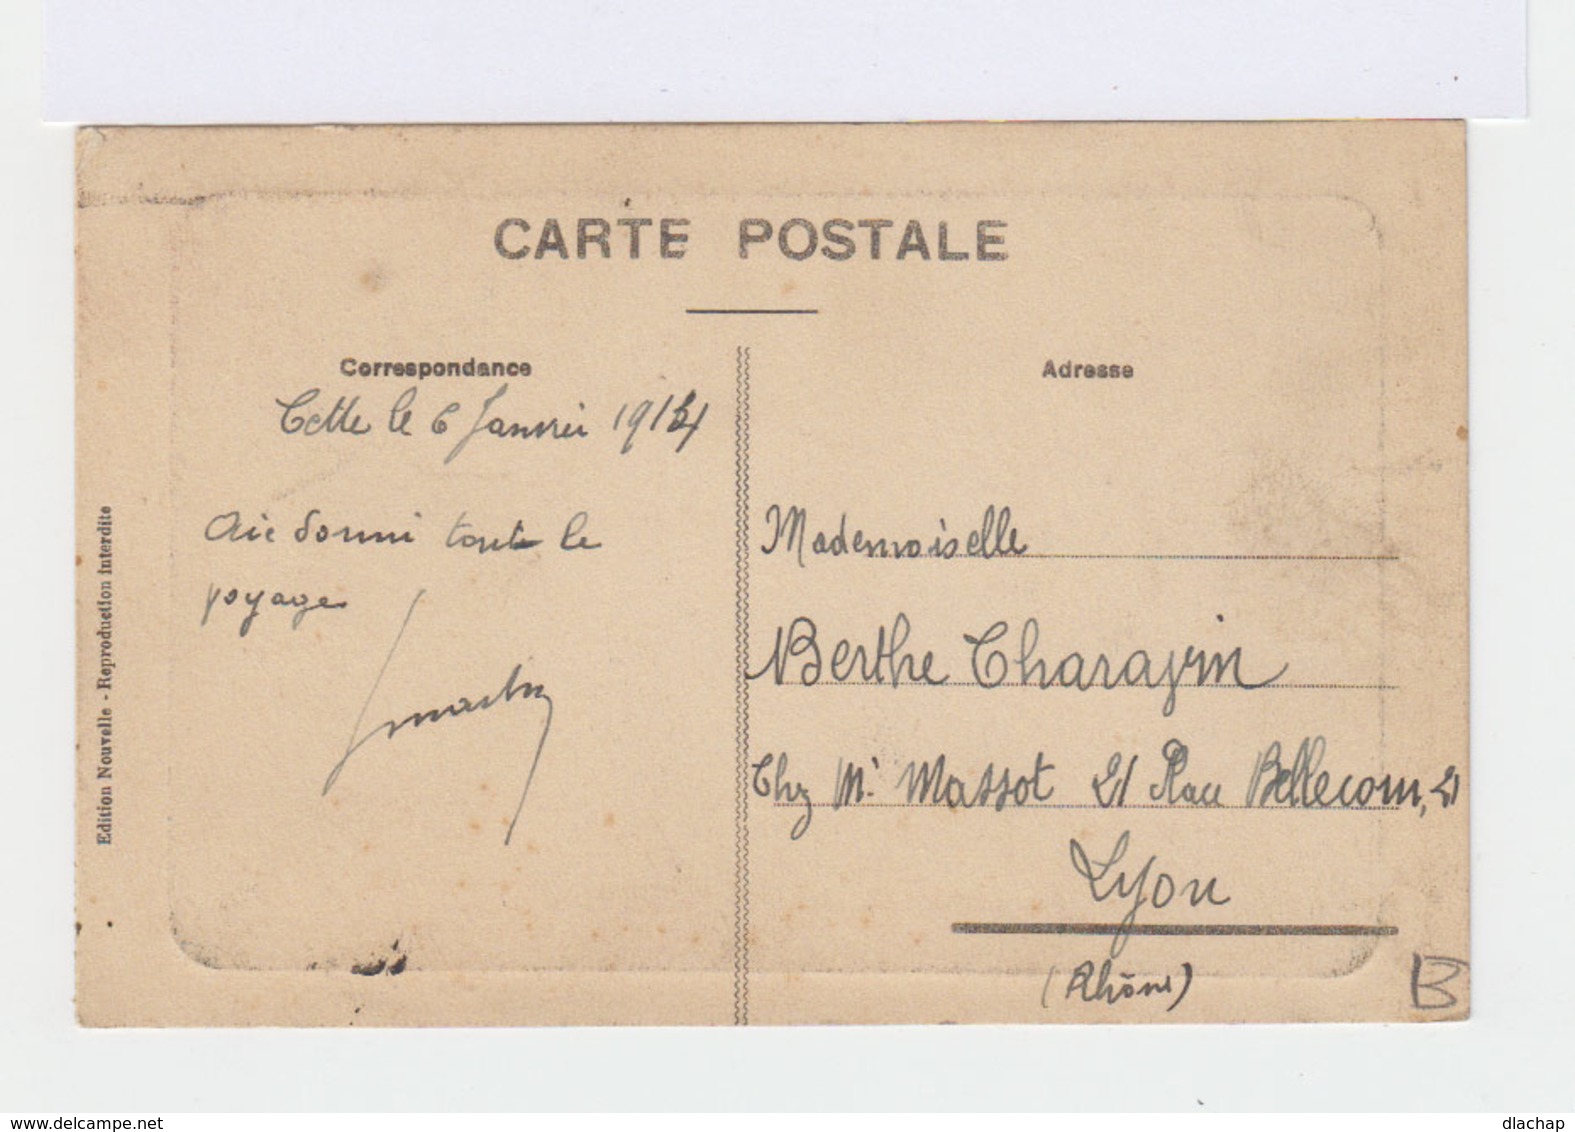 CARTE POSTALE
Correspondance
Cette le 6 Janvier 1914
Aie dormi tout le
voyage
Adresse
Mademoiselle
Berthe
Chez Mr Massot 21 Place Bellecour, 21
Lyon
(Rhône)
B
Edition Nouvelle - Reproduction Interdite
www.delcampe.net
dlachap